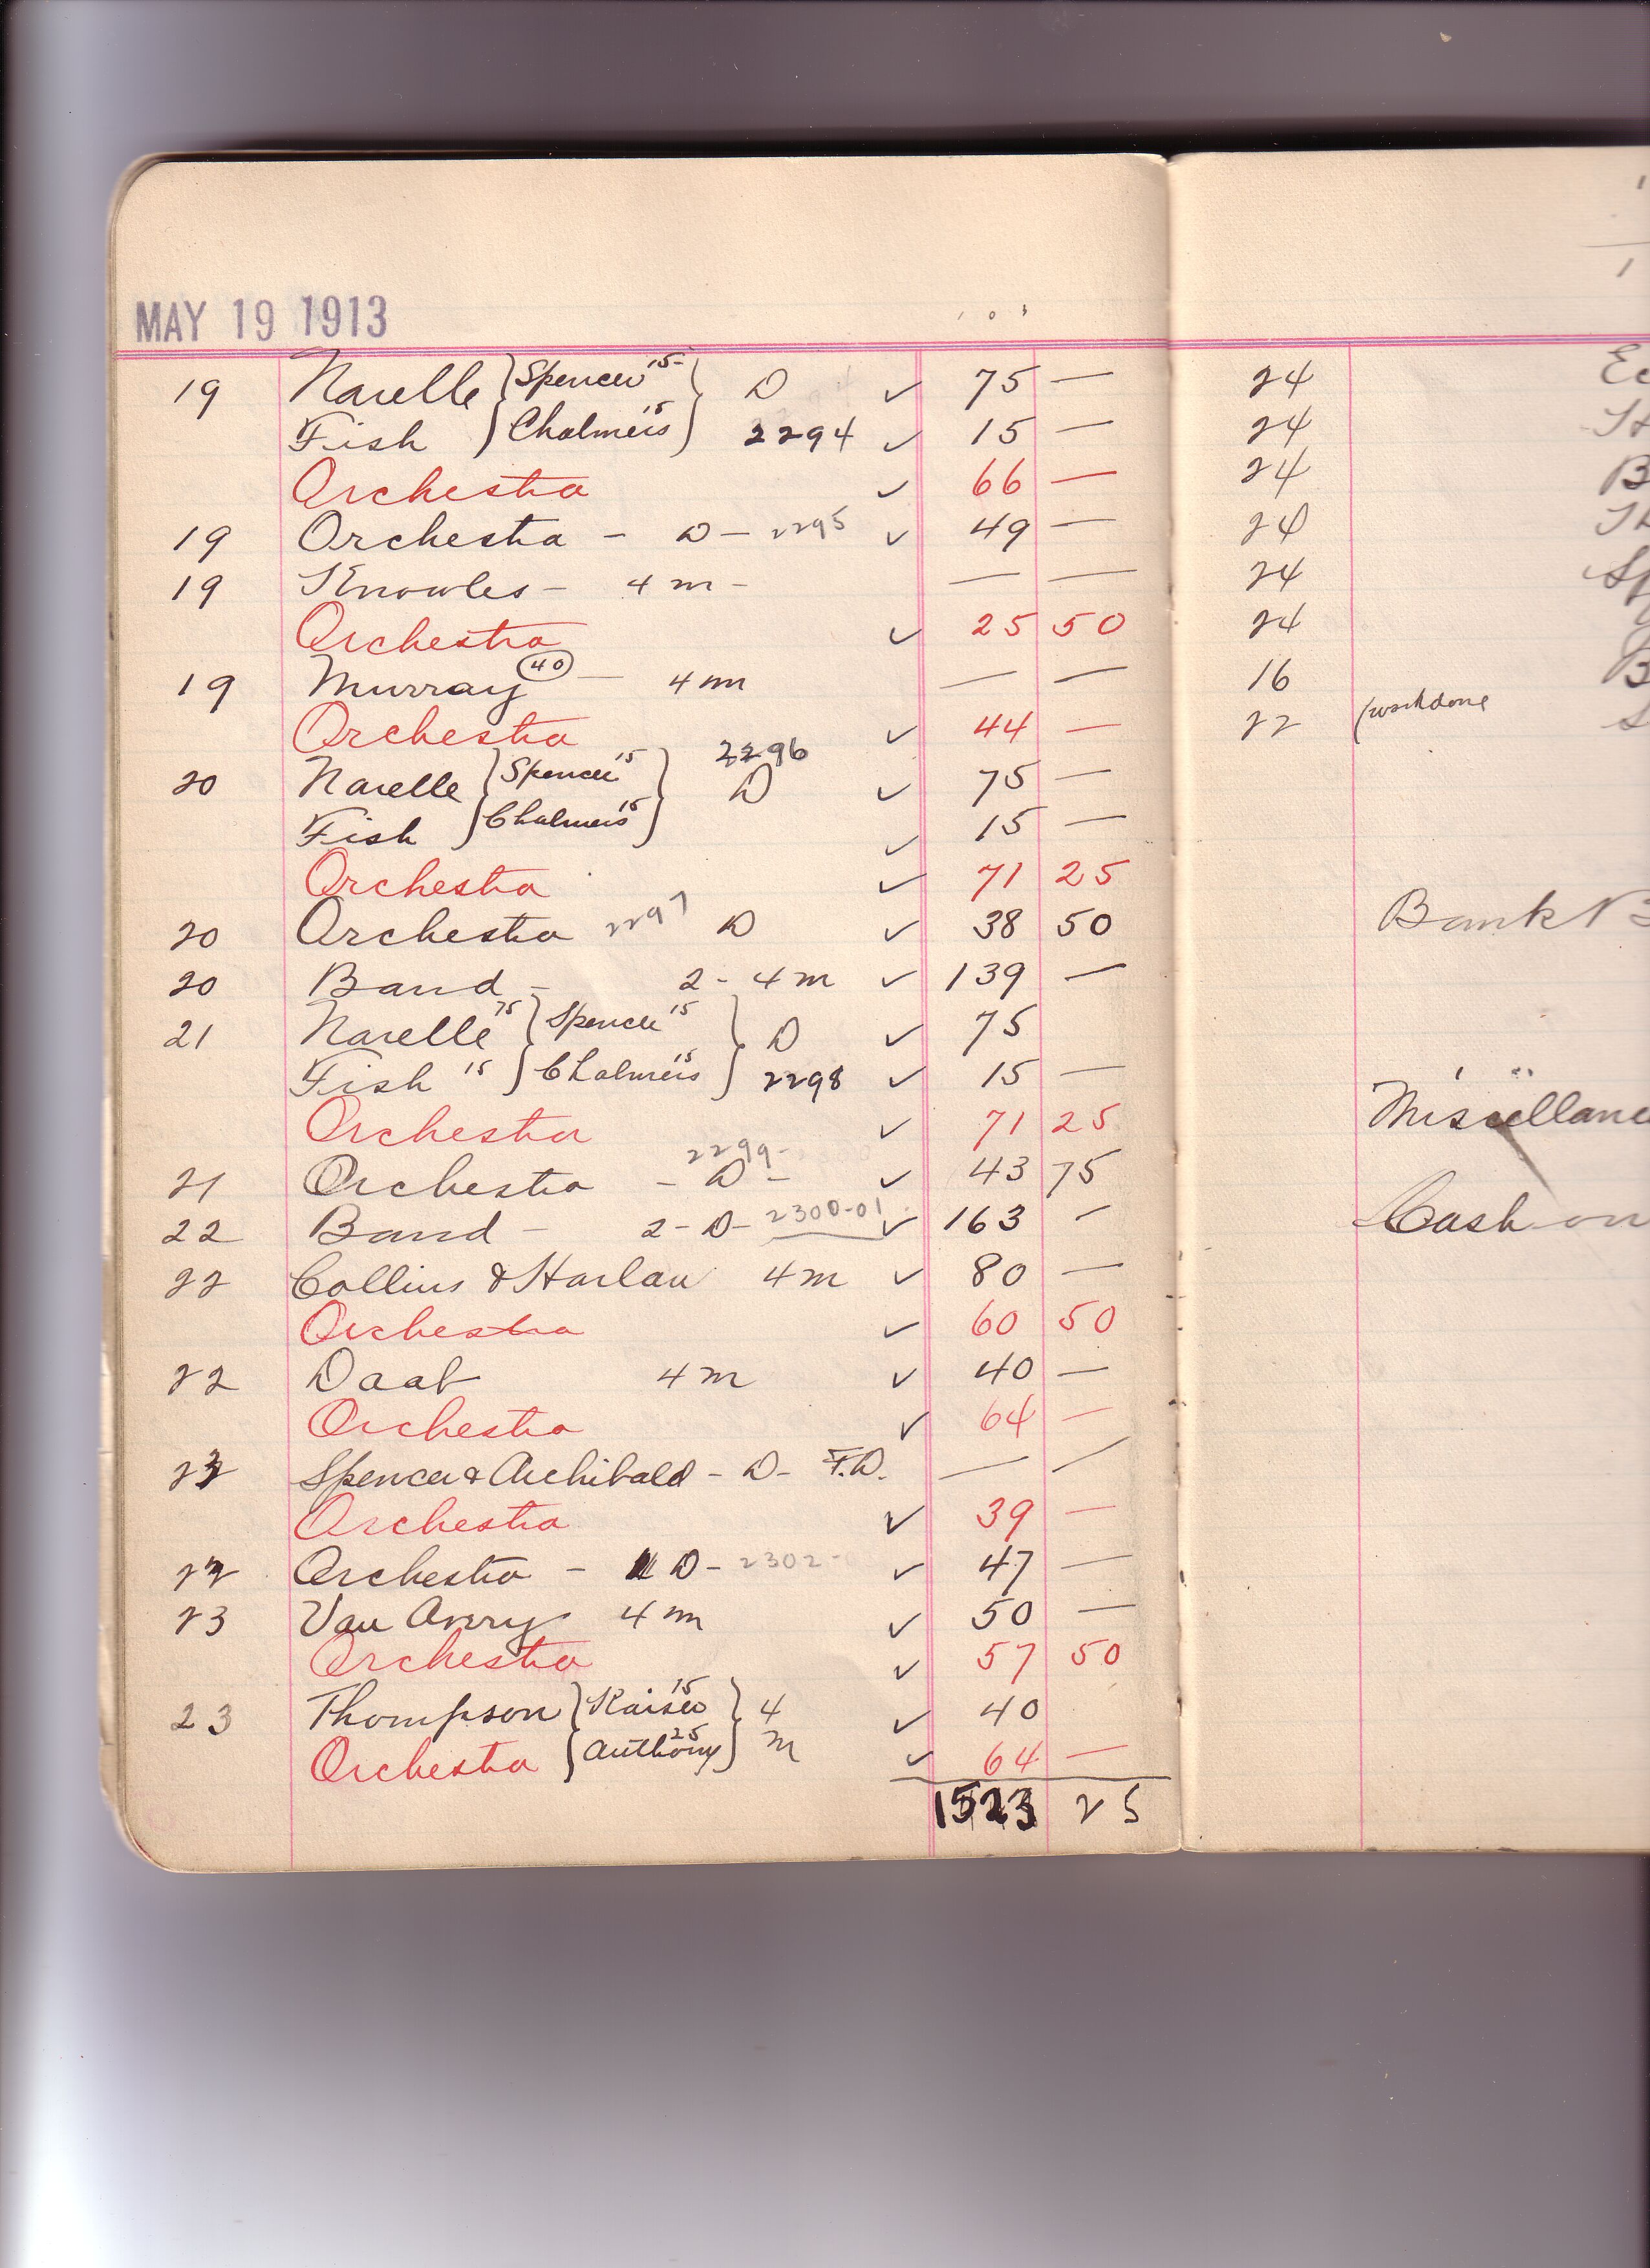 MAY 19 1913
19 Narelle } Spencer 15 } D ✓ 75 —
Fish } Chalmers 15 } 2294 ✓ 15 —
Orchestra ✓ 66 —
19 Orchestra - D - 2295 ✓ 49 —
19 Knowles - 4 m - — —
Orchestra ✓ 25 50
19 Murray (40) — 4 m — —
Orchestra ✓ 44 —
20 Narelle } Spencer 15 } 2296 D ✓ 75 —
Fish } Chalmers 15 } ✓ 15 —
Orchestra ✓ 71 25
20 Orchestra 2297 D ✓ 38 50
20 Band - 2 - 4 m ✓ 139 —
21 Narelle 75 } Spencer 15 } D ✓ 75
Fish 15 } Chalmers 15 } 2298 ✓ 15 —
Orchestra ✓ 71 25
21 Orchestra - D - 2299 - ✓ 43 75
22 Band - 2 - D - 2300-01 ✓ 163 —
22 Collins & Harlan 4 m ✓ 80 —
Orchestra ✓ 60 50
22 Daab 4 m ✓ 40 —
Orchestra ✓ 64 —
Spencer & Archibald - D - F.D. — —
Orchestra ✓ 39 —
Orchestra - D - 2302 - ✓ 47 —
23 Van Avery 4 m ✓ 50 —
Orchestra ✓ 57 50
23 Thompson } Kaiser 15 } 4 ✓ 40
Orchestra } Anthony 25 } m ✓ 64 —
1523 25
24
24
24
24
24
24
16
22 (workdone
Bank
Miscellane
Cash on